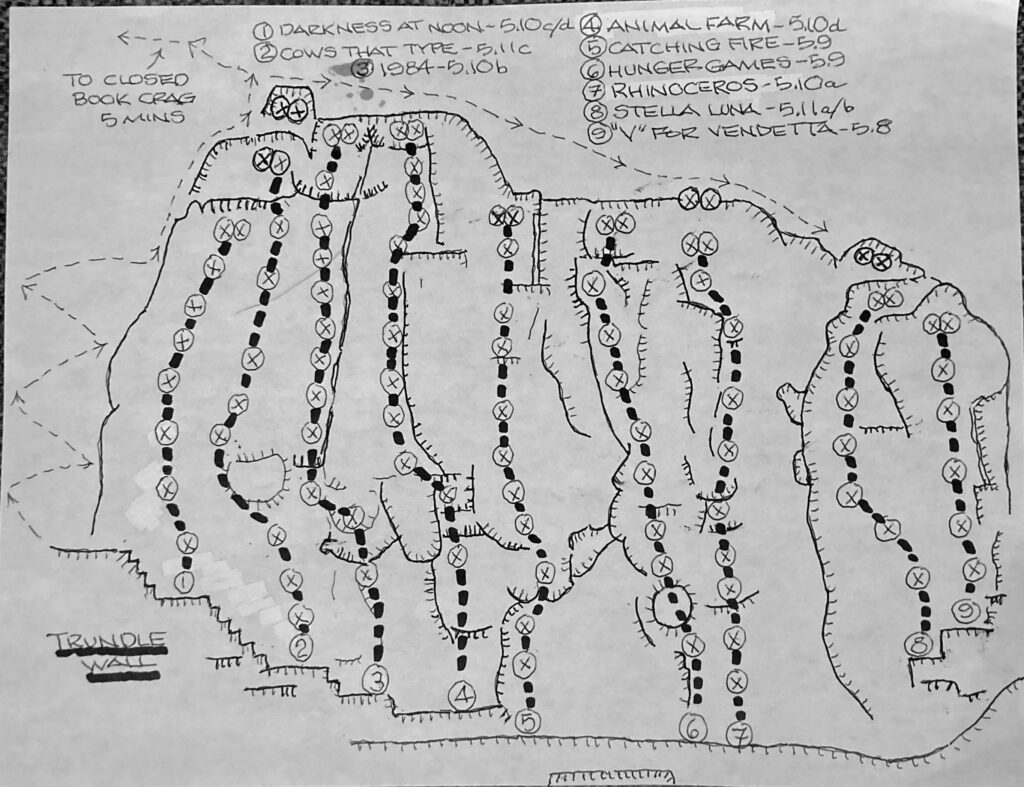 ① DARKNESS AT NOON - 5.10c/d
② COWS THAT TYPE - 5.11c
③ 1984 - 5.10b
④ ANIMAL FARM - 5.10d
⑤ CATCHING FIRE - 5.9
⑥ HUNGER GAMES - 5.9
⑦ RHINOCEROS - 5.10a
⑧ STELLA LUNA - 5.11a/b
⑨ "V" FOR VENDETTA - 5.8
TO CLOSED
BOOK CRAG
5 MINS
TRUNDLE
WALL
①
②
③
④
⑤
⑥
⑦
⑧
⑨